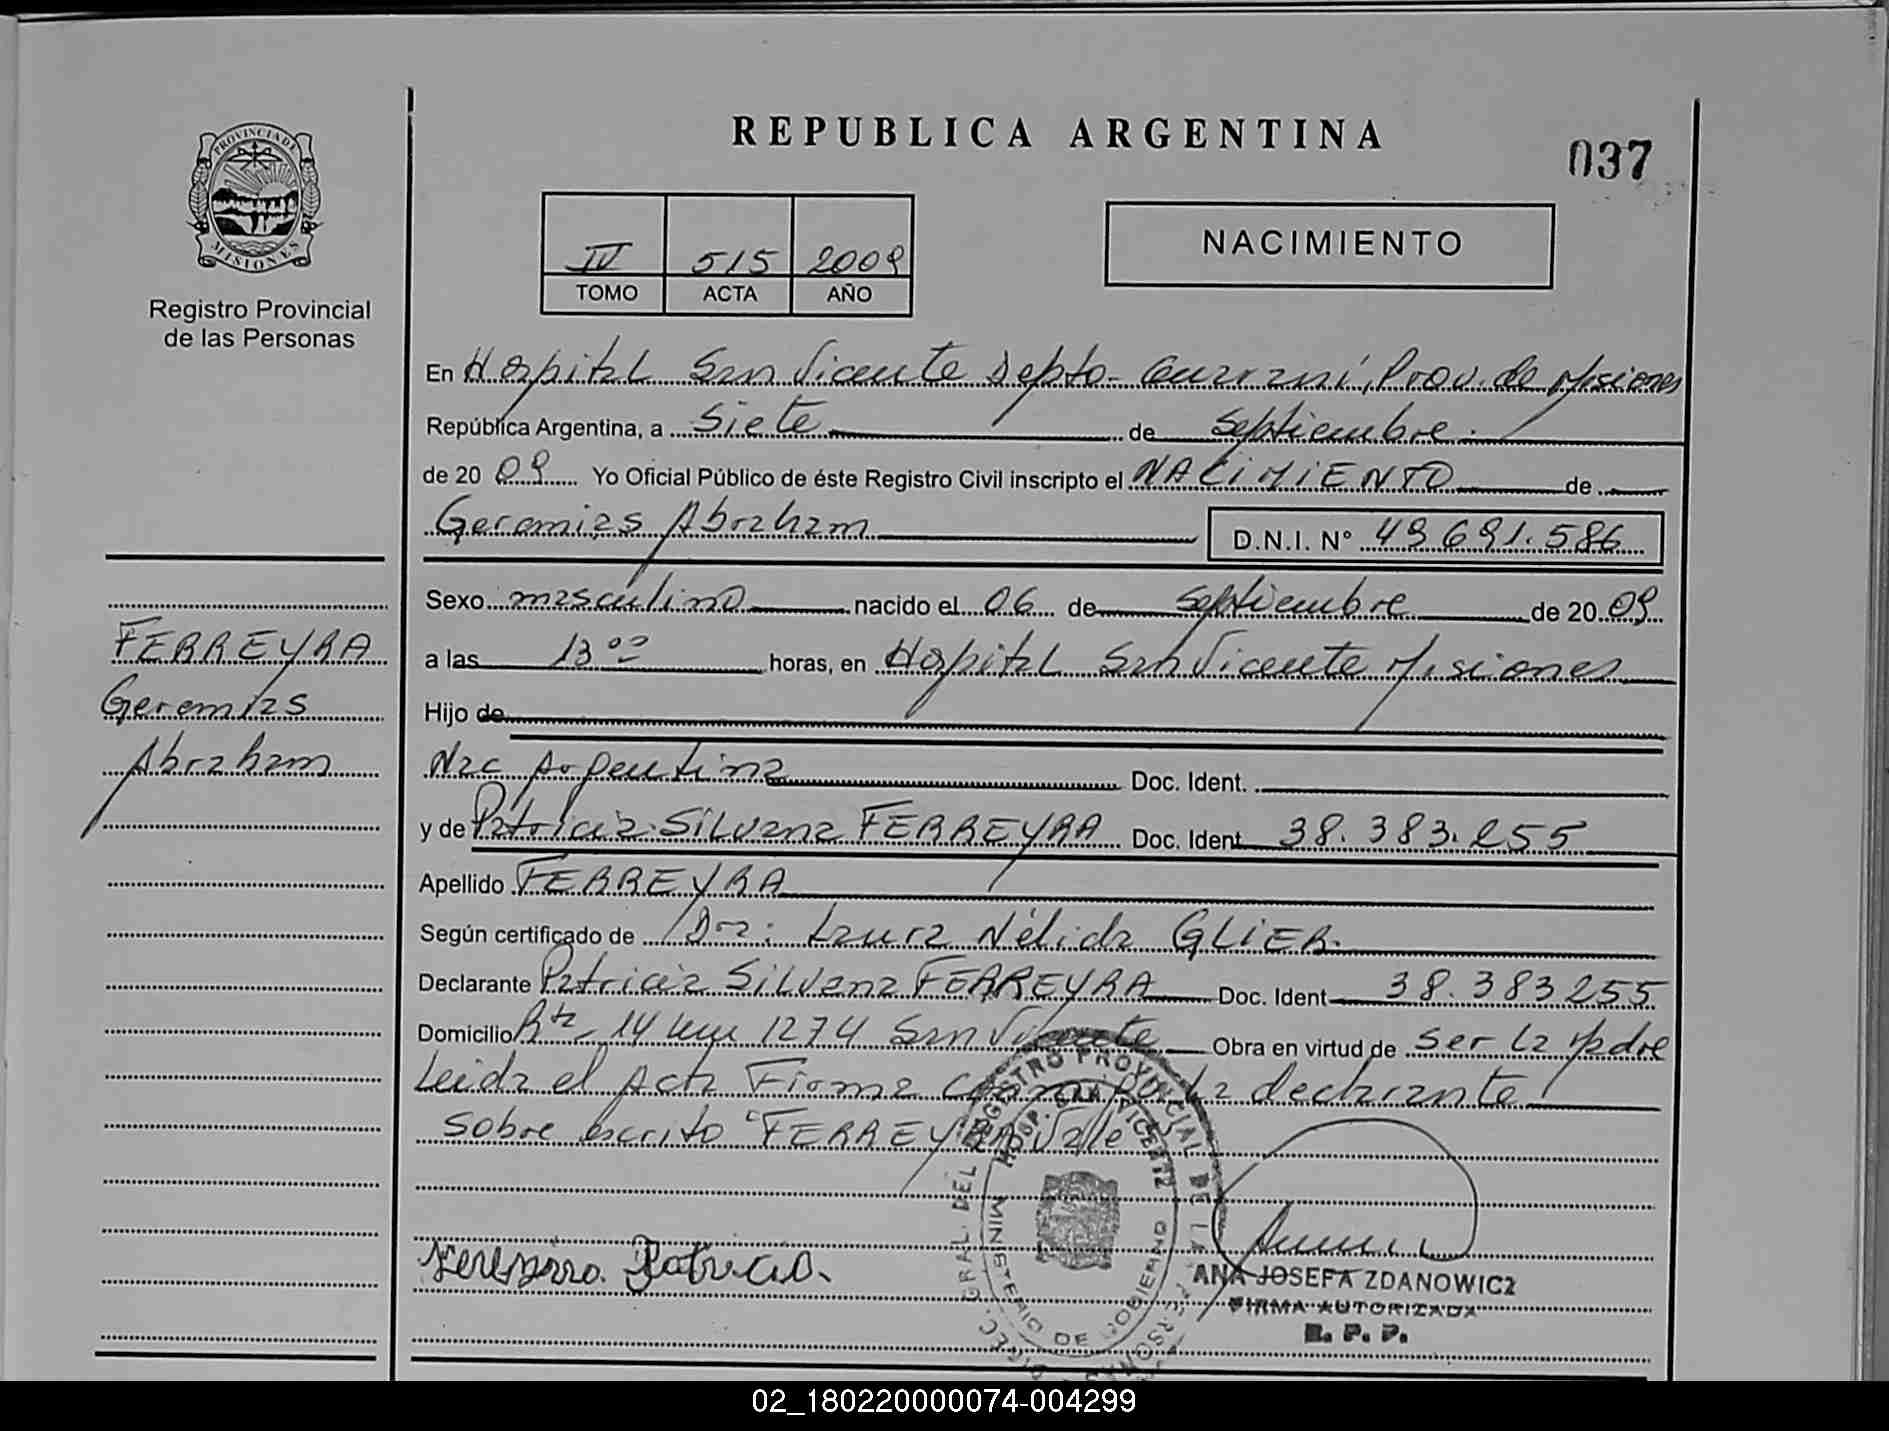 REPUBLICA ARGENTINA
037
PROVINCIA DE
MISIONES
Registro Provincial
de las Personas
IV 515 2009
TOMO ACTA AÑO
NACIMIENTO
En Hospital San Vicente Depto. Guaraní, Prov. de Misiones
República Argentina, a Siete de Septiembre.
de 20 09 Yo Oficial Público de éste Registro Civil inscripto el NACIMIENTO de
Geremias Abraham D.N.I. N° 49.691.586
Sexo masculino nacido el 06 de Septiembre de 20 09
a las 13 00 horas, en Hospital San Vicente Misiones
Hijo de
Nac Argentina Doc. Ident.
y de Patricia Silvana FERREYRA Doc. Ident 38.383.255
Apellido FERREYRA
Según certificado de Dra: Laura Nélida GLIER.
Declarante Patricia Silvana FERREYRA Doc. Ident 38.383255
Domicilio Rta 14 km 1274 San Vicente Obra en virtud de Ser La Madre
Leida el Acta Firma La declarante
Sobre escrito "FERREYRA" Vale
FERREYRA
Geremias
Abraham
Patricia
REGISTRO PROVINCIAL DE LAS PERSONAS
HOSP. SAN VICENTE
MINISTERIO DE GOBIERNO
ANA JOSEFA ZDANOWICZ
FIRMA AUTORIZADA
R. P. P.
02_180220000074-004299